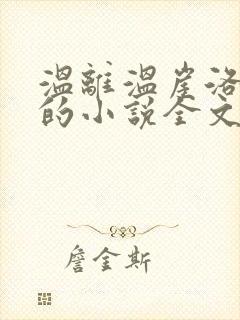 溫離溫崖洛
的小說全文
詹金斯